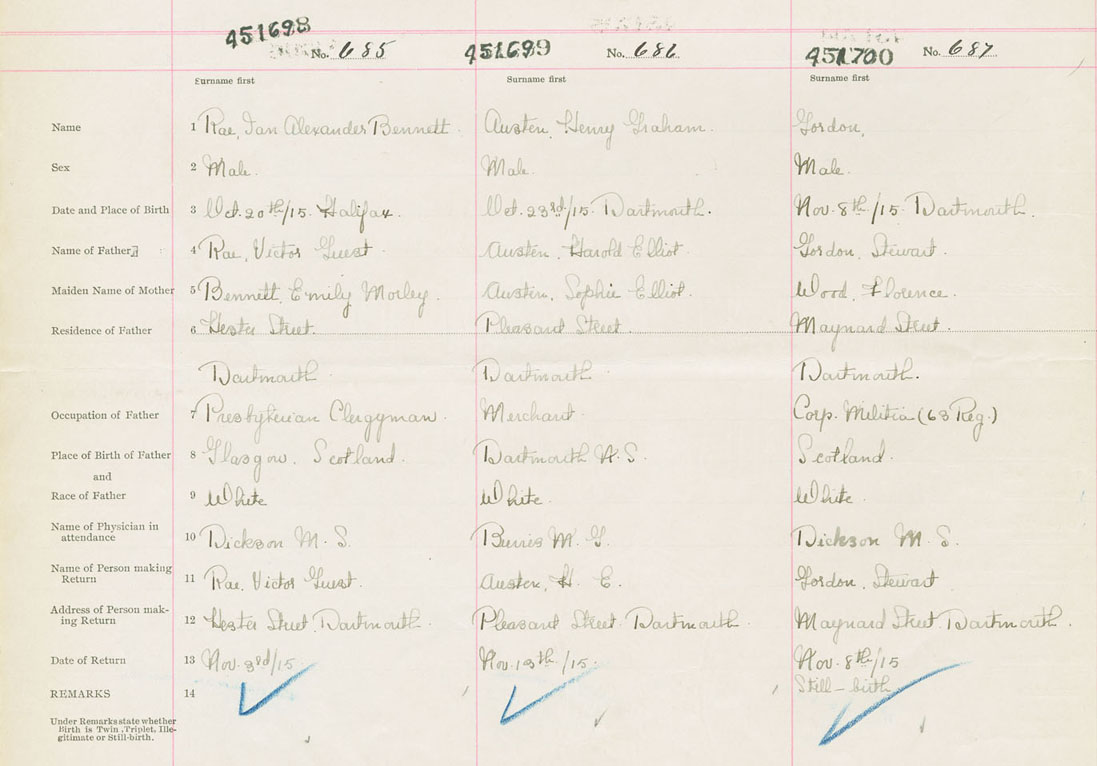 451698 No. 685 451699 No. 686 451700 No. 687
Surname first Surname first Surname first
Name 1 Rae, Ian Alexander Bennett. Austen, Henry Graham. Gordon,
Sex 2 Male. Male. Male.
Date and Place of Birth 3 Oct. 20th/15. Halifax. Oct. 23rd/15. Dartmouth. Nov. 8th/15. Dartmouth.
Name of Father 4 Rae, Victor Guest. Austen, Harold Elliot. Gordon, Stewart.
Maiden Name of Mother 5 Bennett, Emily Morley. Austen, Sophie Elliot. Wood, Florence.
Residence of Father 6 Hester Street. Pleasant Street. Maynard Street.
Dartmouth. Dartmouth. Dartmouth.
Occupation of Father 7 Presbyterian Clergyman. Merchant. Corp. Militia (63 Reg.)
Place of Birth of Father 8 Glasgow, Scotland. Dartmouth N.S. Scotland.
and
Race of Father 9 White White. White.
Name of Physician in
attendance 10 Dickson M. S. Burris M. G. Dickson M. S.
Name of Person making
Return 11 Rae, Victor Guest. Austen, H. E. Gordon, Stewart
Address of Person mak-
ing Return 12 Hester Street, Dartmouth. Pleasant Street. Dartmouth. Maynard Street, Dartmouth.
Date of Return 13 Nov. 3rd/15. Nov. 13th/15. Nov. 8th/15
REMARKS 14 Still-birth
Under Remarks state whether
Birth is Twin, Triplet, Ille-
gitimate or Still-birth.